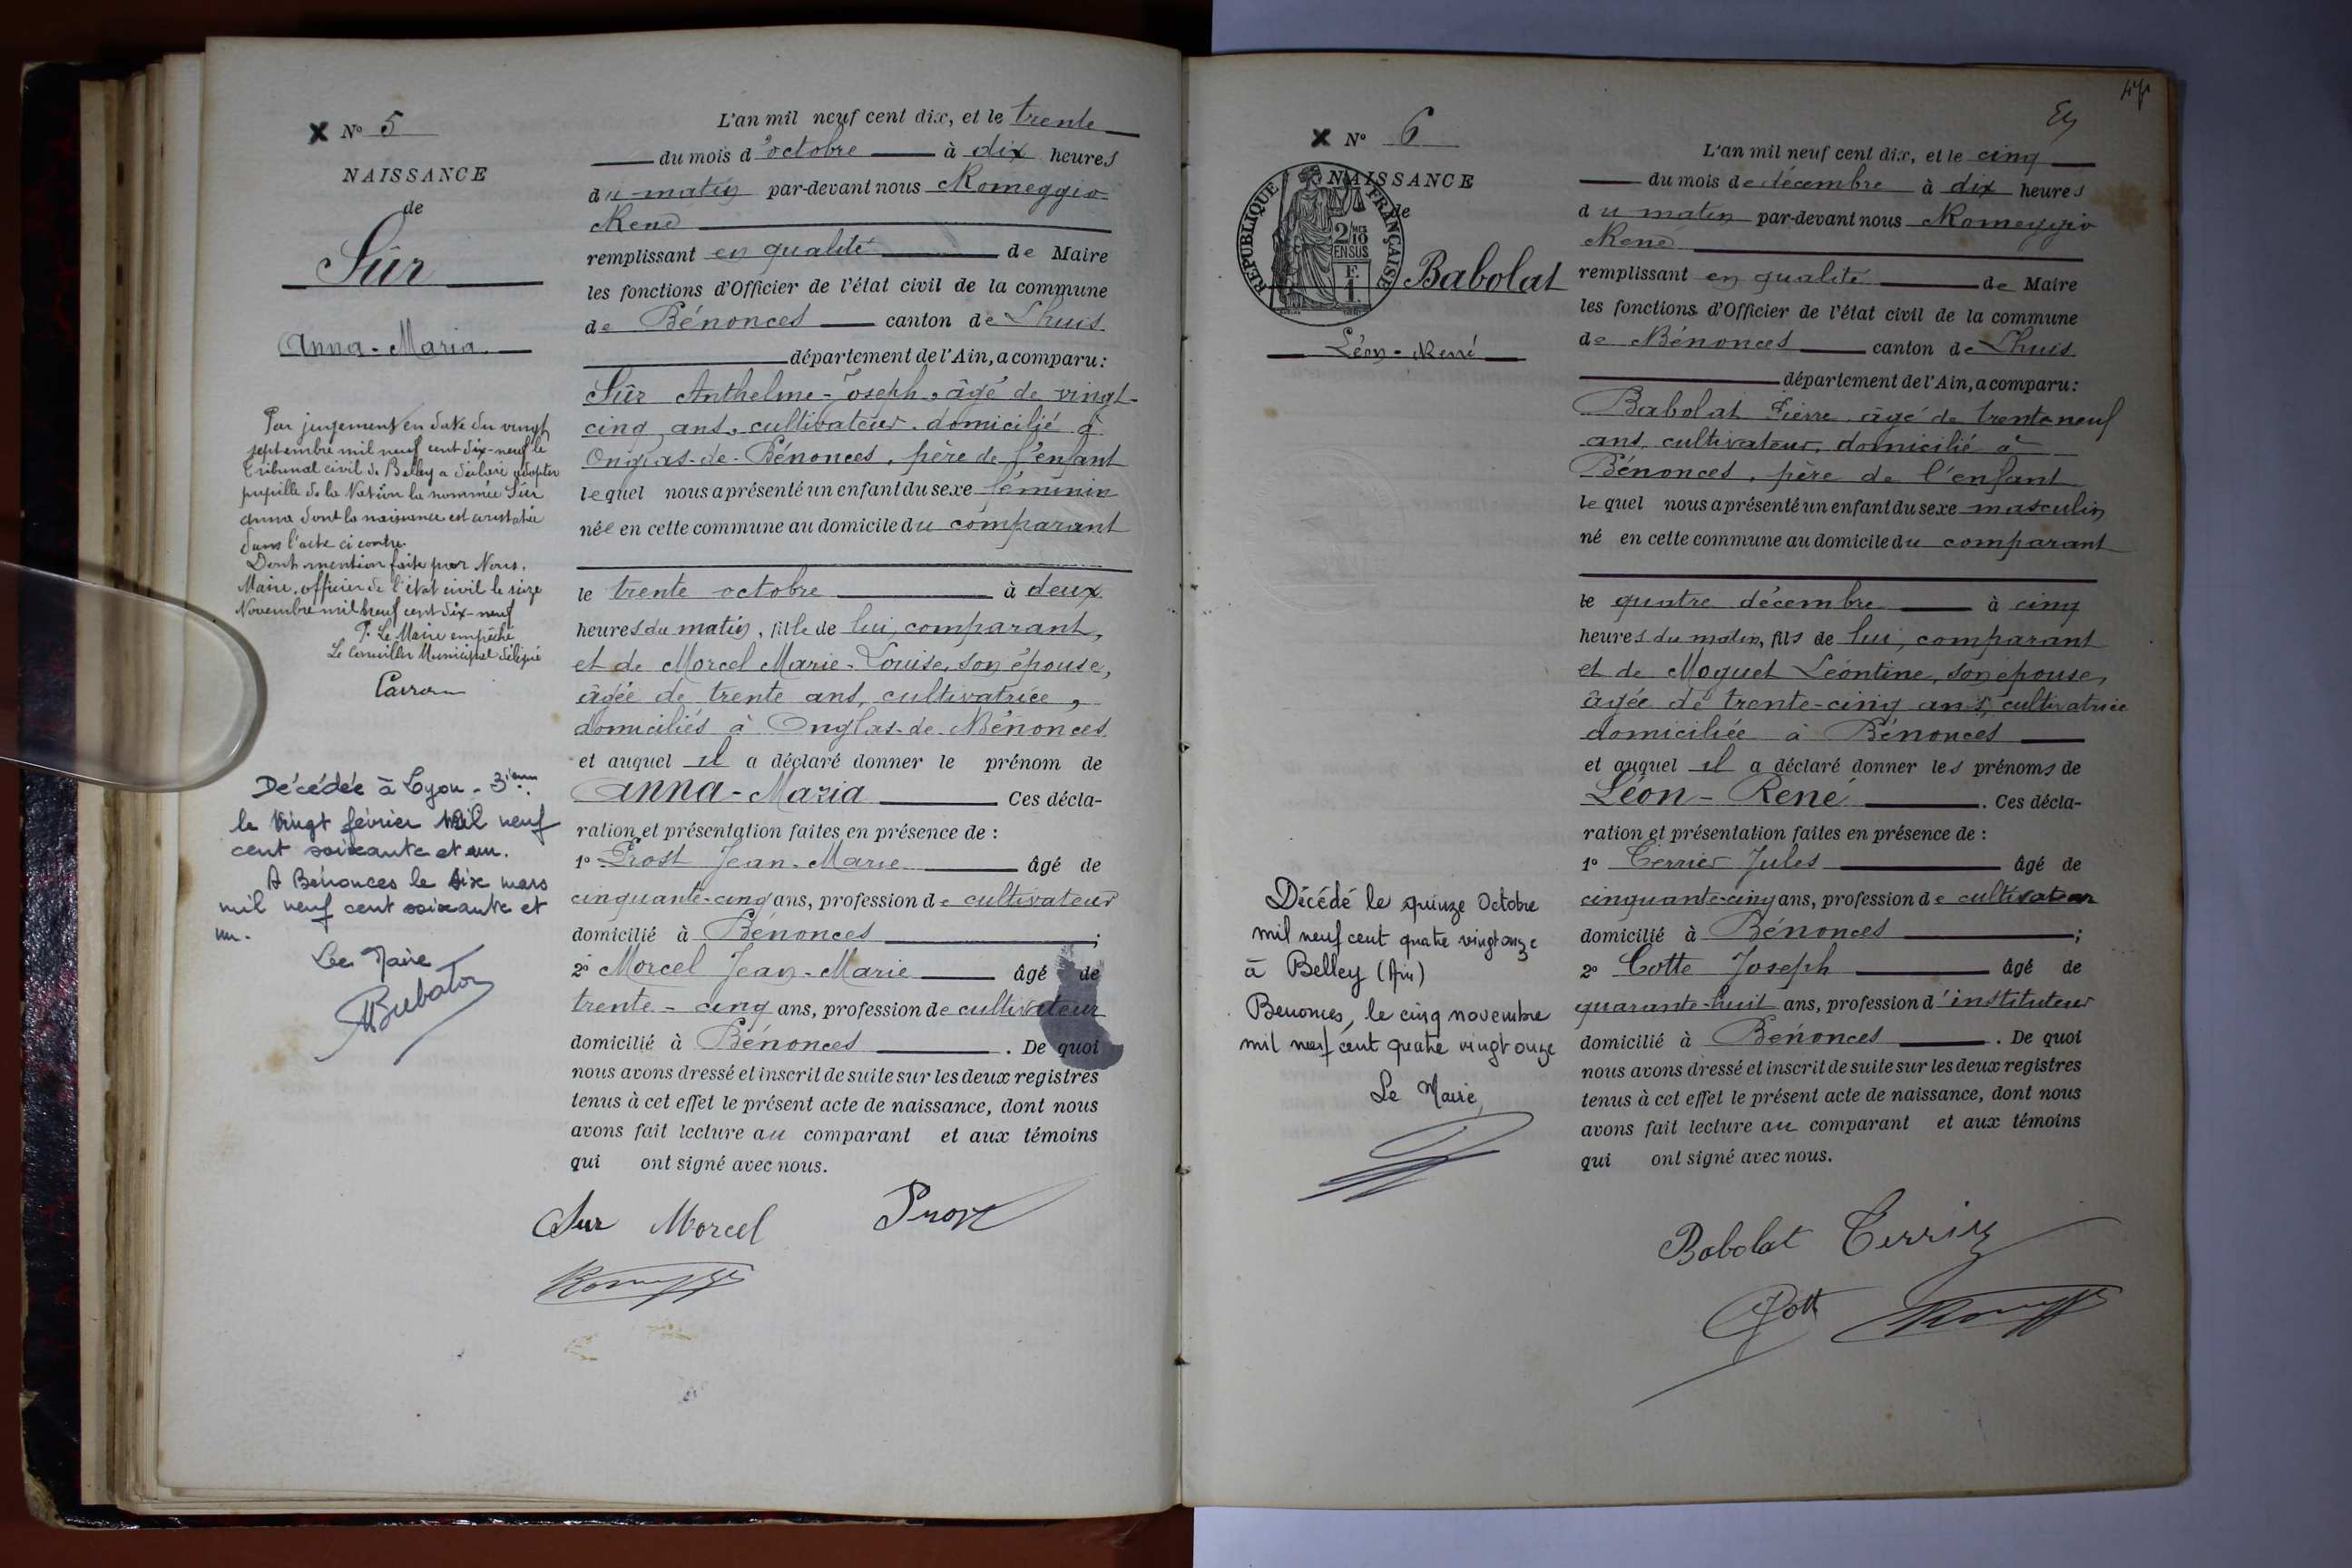 x N° 5
NAISSANCE
de
Sûr
Anna-Maria
Par jugement en date du vingt
septembre mil neuf cent dix-neuf le
Tribunal civil de Belley a déclaré adoptée
pupille de la Nation la nommée Sûr
Anna dont la naissance est constatée
dans l'acte ci contre.
Dont mention faite par Nous,
Maire, officier de l'état civil le seize
Novembre mil neuf cent dix-neuf
P. Le Maire empêché
Le Conseiller Municipal délégué
Décédée à Lyon - 3ième
le vingt février mil neuf
cent soixante et un.
A Bénonces le six mars
mil neuf cent soixante et
un.
Le Maire
L'an mil neuf cent dix, et le trente
du mois d'octobre à dix heures
du matin par-devant nous Romeggio
René
remplissant en qualité de Maire
les fonctions d'Officier de l'état civil de la commune
de Bénonces canton de Lhuis
département de l'Ain, a comparu:
Sûr Anthelme-Joseph, âgé de vingt-
cinq ans, cultivateur, domicilié à
Onglas-de-Bénonces, père de l'enfant
lequel nous a présenté un enfant du sexe féminin
née en cette commune au domicile du comparant
le trente octobre à deux
heures du matin, fille de lui, comparant,
et de Morcel Marie-Louise, son épouse,
âgée de trente ans, cultivatrice,
domiciliés à Onglas-de-Bénonces
et auquel il a déclaré donner le prénom de
Anna-Maria Ces décla-
ration et présentation faites en présence de :
1° Prost Jean-Marie âgé de
cinquante-cinq ans, profession de cultivateur
domicilié à Bénonces ;
2° Morcel Jean-Marie âgé de
trente-cinq ans, profession de cultivateur
domicilié à Bénonces . De quoi
nous avons dressé et inscrit de suite sur les deux registres
tenus à cet effet le présent acte de naissance, dont nous
avons fait lecture au comparant et aux témoins
qui ont signé avec nous.
Sur Morcel Prost
x N° 6
NAISSANCE
de
RÉPUBLIQUE FRANÇAISE
2/10 EN SUS
F. 1
Babolat
Léon-René
Décédé le quinze Octobre
mil neuf cent quatre vingt onze
à Belley (Ain)
Benonces, le cinq novembre
mil neuf cent quatre vingt onze
Le Maire,
L'an mil neuf cent dix, et le cinq
du mois de décembre à dix heures
du matin par-devant nous Romeggio
René
remplissant en qualité de Maire
les fonctions d'Officier de l'état civil de la commune
de Bénonces canton de Lhuis
département de l'Ain, a comparu:
Babolat Pierre, âgé de trente neuf
ans, cultivateur, domicilié à
Bénonces, père de l'enfant
lequel nous a présenté un enfant du sexe masculin
né en cette commune au domicile du comparant
le quatre décembre à cinq
heures du matin, fils de lui, comparant
et de Moquet Léontine, son épouse,
âgée de trente-cinq ans, cultivatrice
domiciliée à Bénonces
et auquel il a déclaré donner les prénoms de
Léon-René . Ces décla-
ration et présentation faites en présence de :
1° Terrier Jules âgé de
cinquante-cinq ans, profession de cultivateur
domicilié à Bénonces ;
2° Cotte Joseph âgé de
quarante-huit ans, profession d'instituteur
domicilié à Bénonces . De quoi
nous avons dressé et inscrit de suite sur les deux registres
tenus à cet effet le présent acte de naissance, dont nous
avons fait lecture au comparant et aux témoins
qui ont signé avec nous.
Babolat Terrier